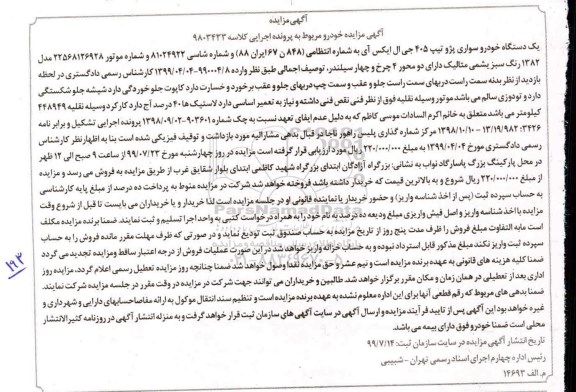 آگهی مزایده
آگهی مزایده خودرو مربوط به پرونده اجرایی کلاسه ۹۸۰۳۴۳۳
یک دستگاه خودرو سواری پژو تیپ ۴۰۵ جی ال ایکس آی به شماره انتظامی (۸۴۸ ن ۶۷ ایران ۸۸) و شماره شاسی ۸۱۰۲۴۹۲۲ و شماره موتور ۲۲۵۶۸۱۲۶۹۲۸ مدل
۱۳۸۲ رنگ سبز یشمی متالیک دارای دو محور ۴ چرخ و چهار سیلندر، توصیف اجمالی طبق نظر وارده ۹۹۰۰۰۴۸-۱۳۹۹/۰۴/۰۴ کارشناس رسمی دادگستری در لحظه
بازدید از نظر بدنه سمت راست دربهای سمت راست جلو و عقب و سمت چپ دربهای جلو و عقب برخورد و خسارت دارد کاپوت جلو خوردگی دارد شیشه جلو شکستگی
دارد و تودوزی سالم می باشد موتور وسیله نقلیه فوق از نظر فنی نقص فنی داشته و نیاز به تعمیر اساسی دارد لاستیک ها ۴۰ درصد آج دارد کارکرد وسیله نقلیه ۴۴۸۹۴۹
کیلومتر می باشد متعلق به خانم اکرم السادات موسی کاظم که به دلیل عدم ایفای تعهد نسبت به چک شماره ۹۰۳۶۰۱-۱۳۹۸/۰۹/۰۲ پرونده اجرایی تشکیل و برابر نامه
۱۳/۱۹/۹۸۲:۳۴۲۶ - ۱۳۹۸/۱۰/۱۰ مرکز شماره گذاری پلیس راهور ناجا در قبال بدهی مشارالیه مورد بازداشت و توقیف فیزیکی شده است بنا به اظهار نظر کارشناس
رسمی دادگستری مورخ ۱۳۹۹/۰۴/۰۴ به مبلغ ۲۲۰/۰۰۰/۰۰۰ ریال مورد ارزیابی قرار گرفته است مزایده در روز چهارشنبه مورخ ۹۹/۰۷/۲۳ از ساعت ۹ صبح الی ۱۲ ظهر
در محل پارکینگ بزرگ پاسارگاد نواب به نشانی: بزرگراه آزادگان ابتدای بزرگراه شهید کاظمی ابتدای بلوار شقایق غرب از طریق مزایده به فروش می رسد و مزایده
از مبلغ ۲۲۰/۰۰۰/۰۰۰ ریال شروع و به بالاترین قیمت که خریدار داشته باشد فروخته خواهد شد شرکت در مزایده منوط به پرداخت ده درصد از مبلغ پایه کارشناسی
به حساب سپرده ثبت (پس از اخذ شناسه واریز) و حضور خریدار یا نماینده قانونی او در جلسه مزایده است لذا خریدار و یا خریداران می بایست تا قبل از شروع وقت
مزایده با اخذ شناسه واریز و اصل فیش واریزی مبلغ ودیعه ده درصد اعلام خود را به همراه درخواست کتبی به واحد اجرا تسلیم و ثبت نمایند. ضمنا برنده مکلف
است مابه التفاوت مبلغ فروش را ظرف مدت پنج روز از تاریخ مزایده به حساب صندوق ثبت تودیع نماید و در صورتی که ظرف مهلت مقرر مانده فروش را به حساب
سپرده ثبت واریز نکند مبلغ مذکور قابل استرداد نبوده و به حساب خزانه واریز خواهد شد. در این صورت عملیات فروش از درجه اعتبار ساقط و مزایده تجدید می گردد
ضمنا کلیه هزینه های قانونی به عهده برنده مزایده است و نیم عشر و حق مزایده نقدا وصول خواهد شد ضمنا چنانچه روز مزایده تعطیل رسمی اعلام گردد، مزایده روز
اداری بعد از تعطیلی در همان زمان و مکان مقرر برگزار خواهد شد. طالبین و خریداران می توانند جهت شرکت در مزایده در وقت مقرر در جلسه مزایده شرکت نمایند.
ضمنا بدهی های مربوط که رقم قطعی آنها برای این اداره معلوم نشده به عهده برنده مزایده است و تنظیم سند انتقال موکول به ارائه مفاصاحسابهای دارایی و شهرداری و
غیره خواهد بود این آگهی پس از تایید فرآیند مزایده و ارسال آگهی در سایت آگهی های سازمان ثبت قرار خواهد گرفت و به منزله انتشار آگهی در روزنامه کثیرالانتشار
محلی است ضمنا خودرو فوق دارای بیمه می باشد.
تاریخ انتشار آگهی مزایده در سایت سازمان ثبت: ۹۹/۷/۱۴
رئیس اداره چهارم اجرای اسناد رسمی تهران - شبیبی
م. الف ۱۴۶۹۳
۱۹۳